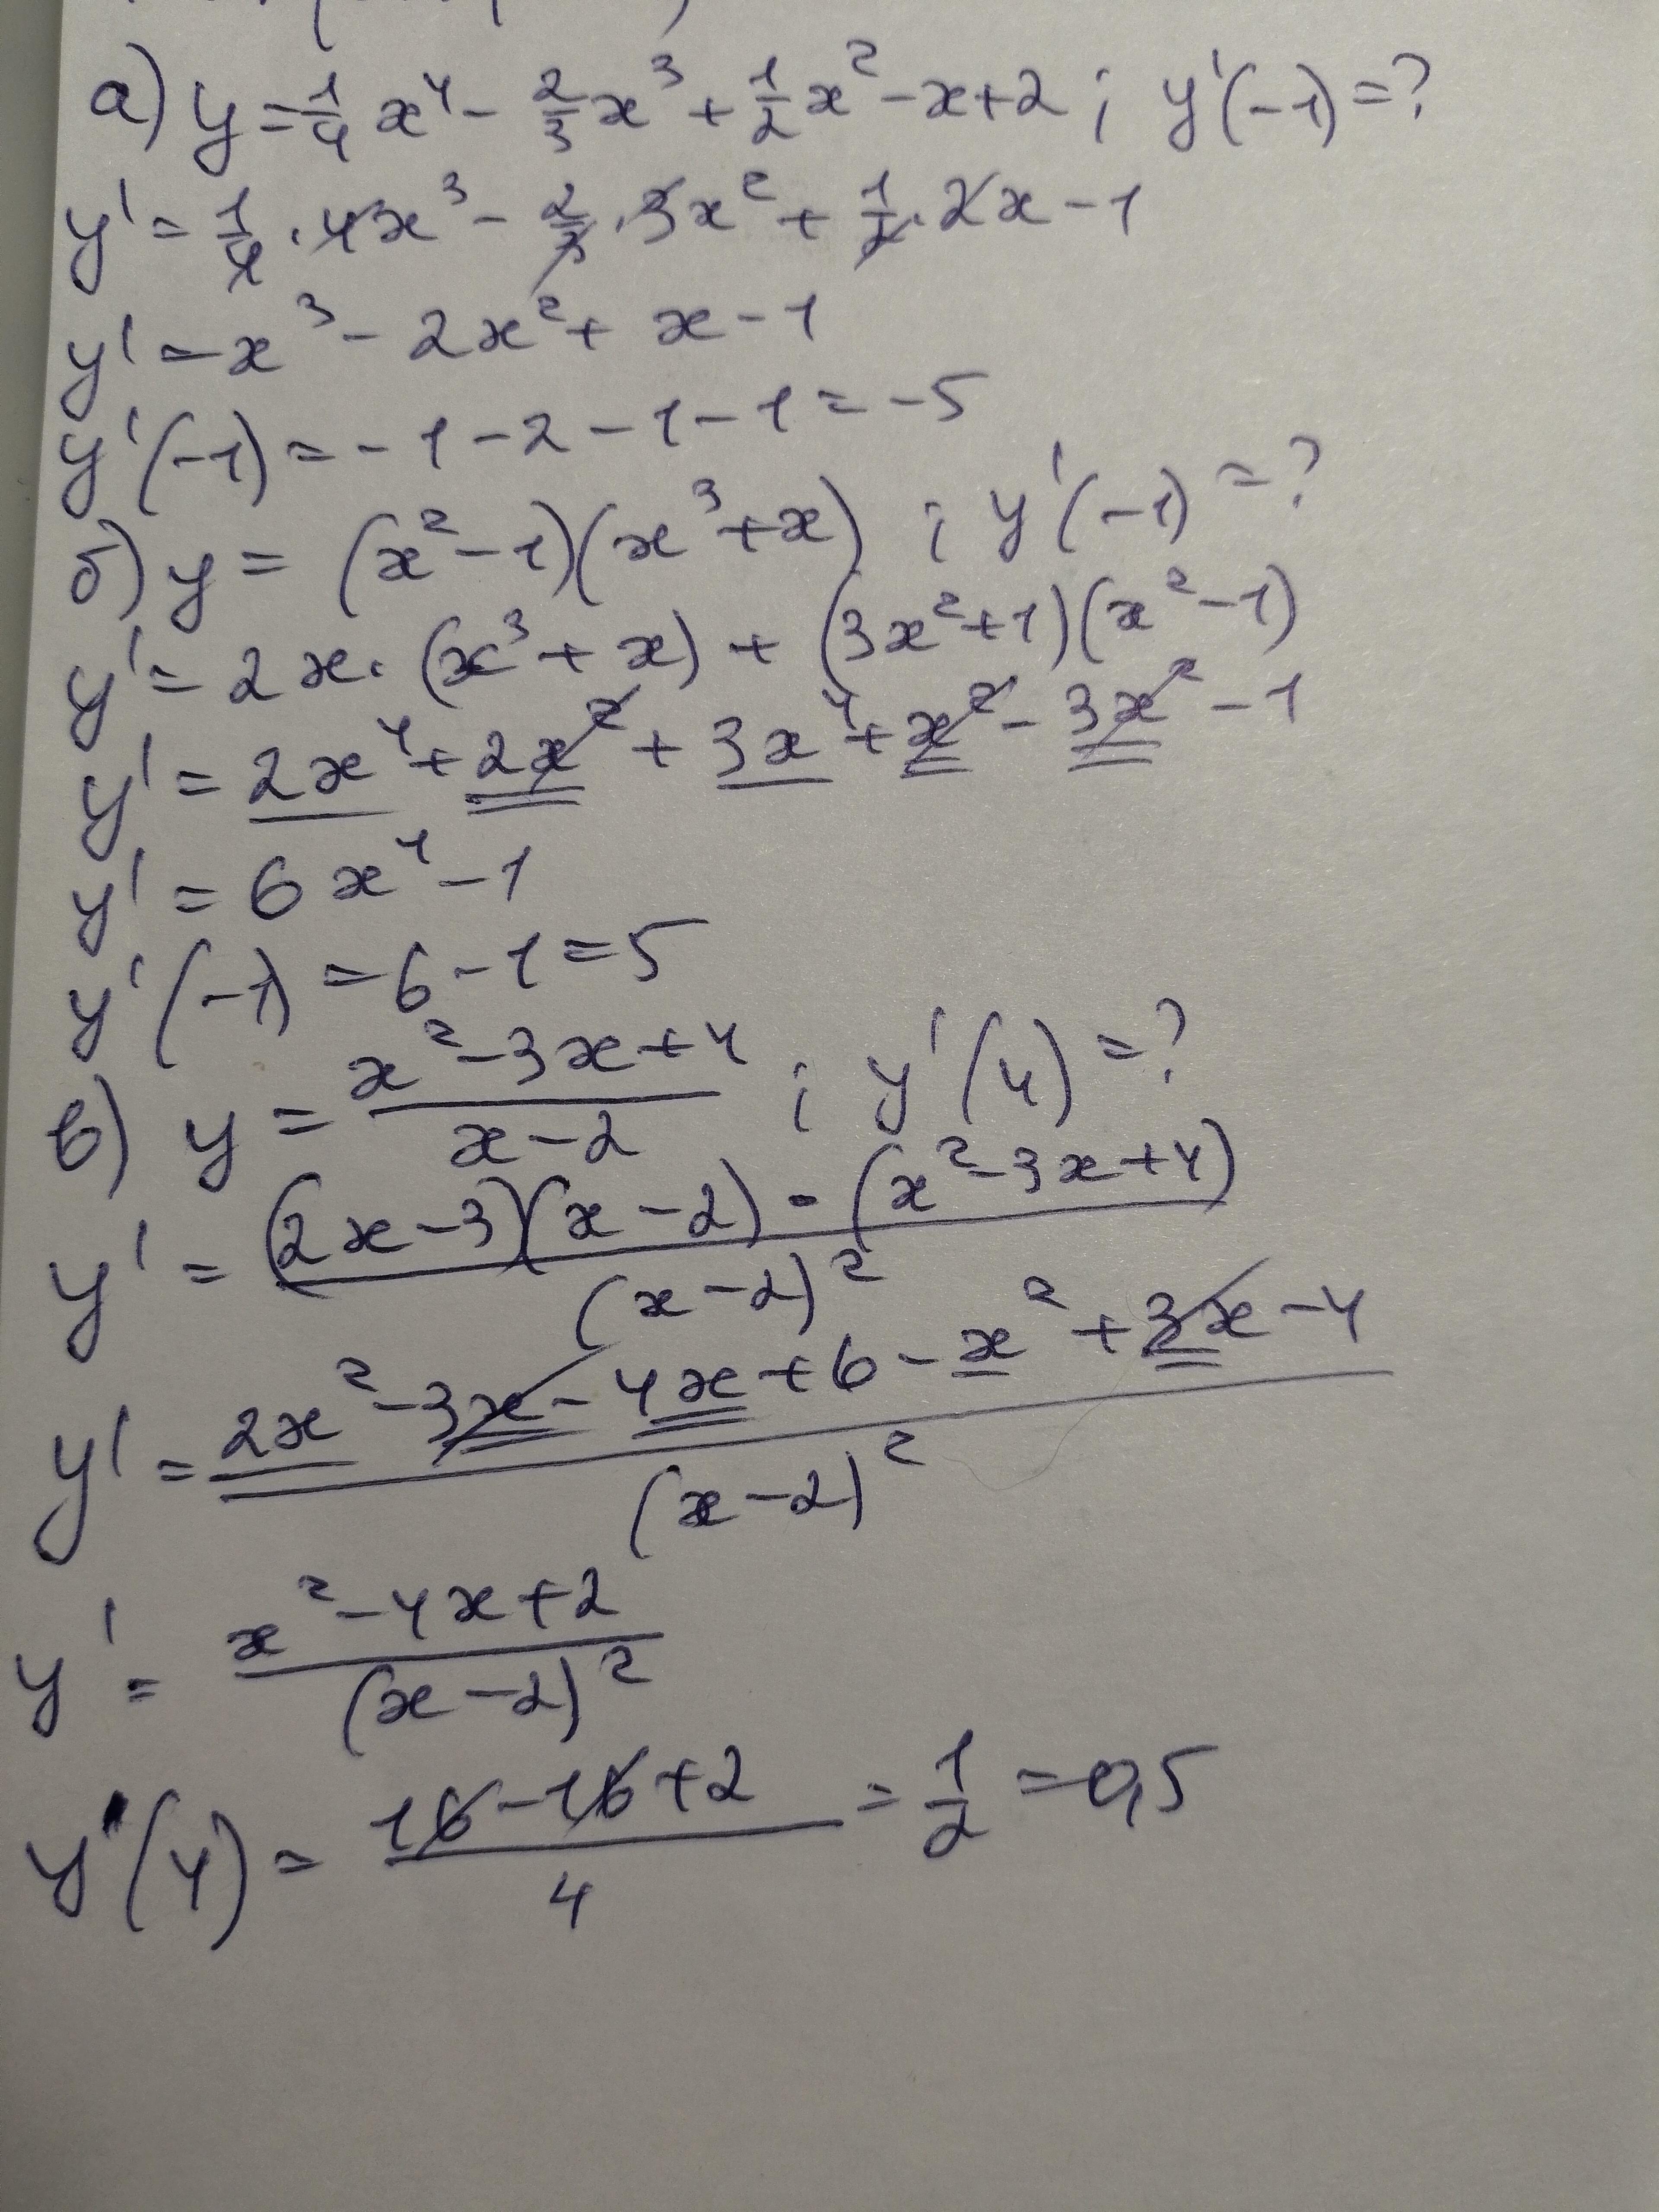 а) y = 1/4 x⁴ - 2/3 x³ + 1/2 x² - x + 2 ; y'(-1) = ?
y' = 1/4 · 4x³ - 2/3 · 3x² + 1/2 · 2x - 1
y' = x³ - 2x² + x - 1
y'(-1) = -1 - 2 - 1 - 1 = -5
б) y = (x² - 1)(x³ + x) ; y'(-1) = ?
y' = 2x · (x³ + x) + (3x² + 1)(x² - 1)
y' = 2x⁴ + 2x² + 3x⁴ + x² - 3x² - 1
y' = 6x⁴ - 1
y'(-1) = 6 - 1 = 5
в) y = (x² - 3x + 4)/(x - 2) ; y'(4) = ?
y' = ((2x - 3)(x - 2) - (x² - 3x + 4))/(x - 2)²
y' = (2x² - 3x - 4x + 6 - x² + 3x - 4)/(x - 2)²
y' = (x² - 4x + 2)/(x - 2)²
y'(4) = (16 - 16 + 2)/4 = 1/2 = 0,5